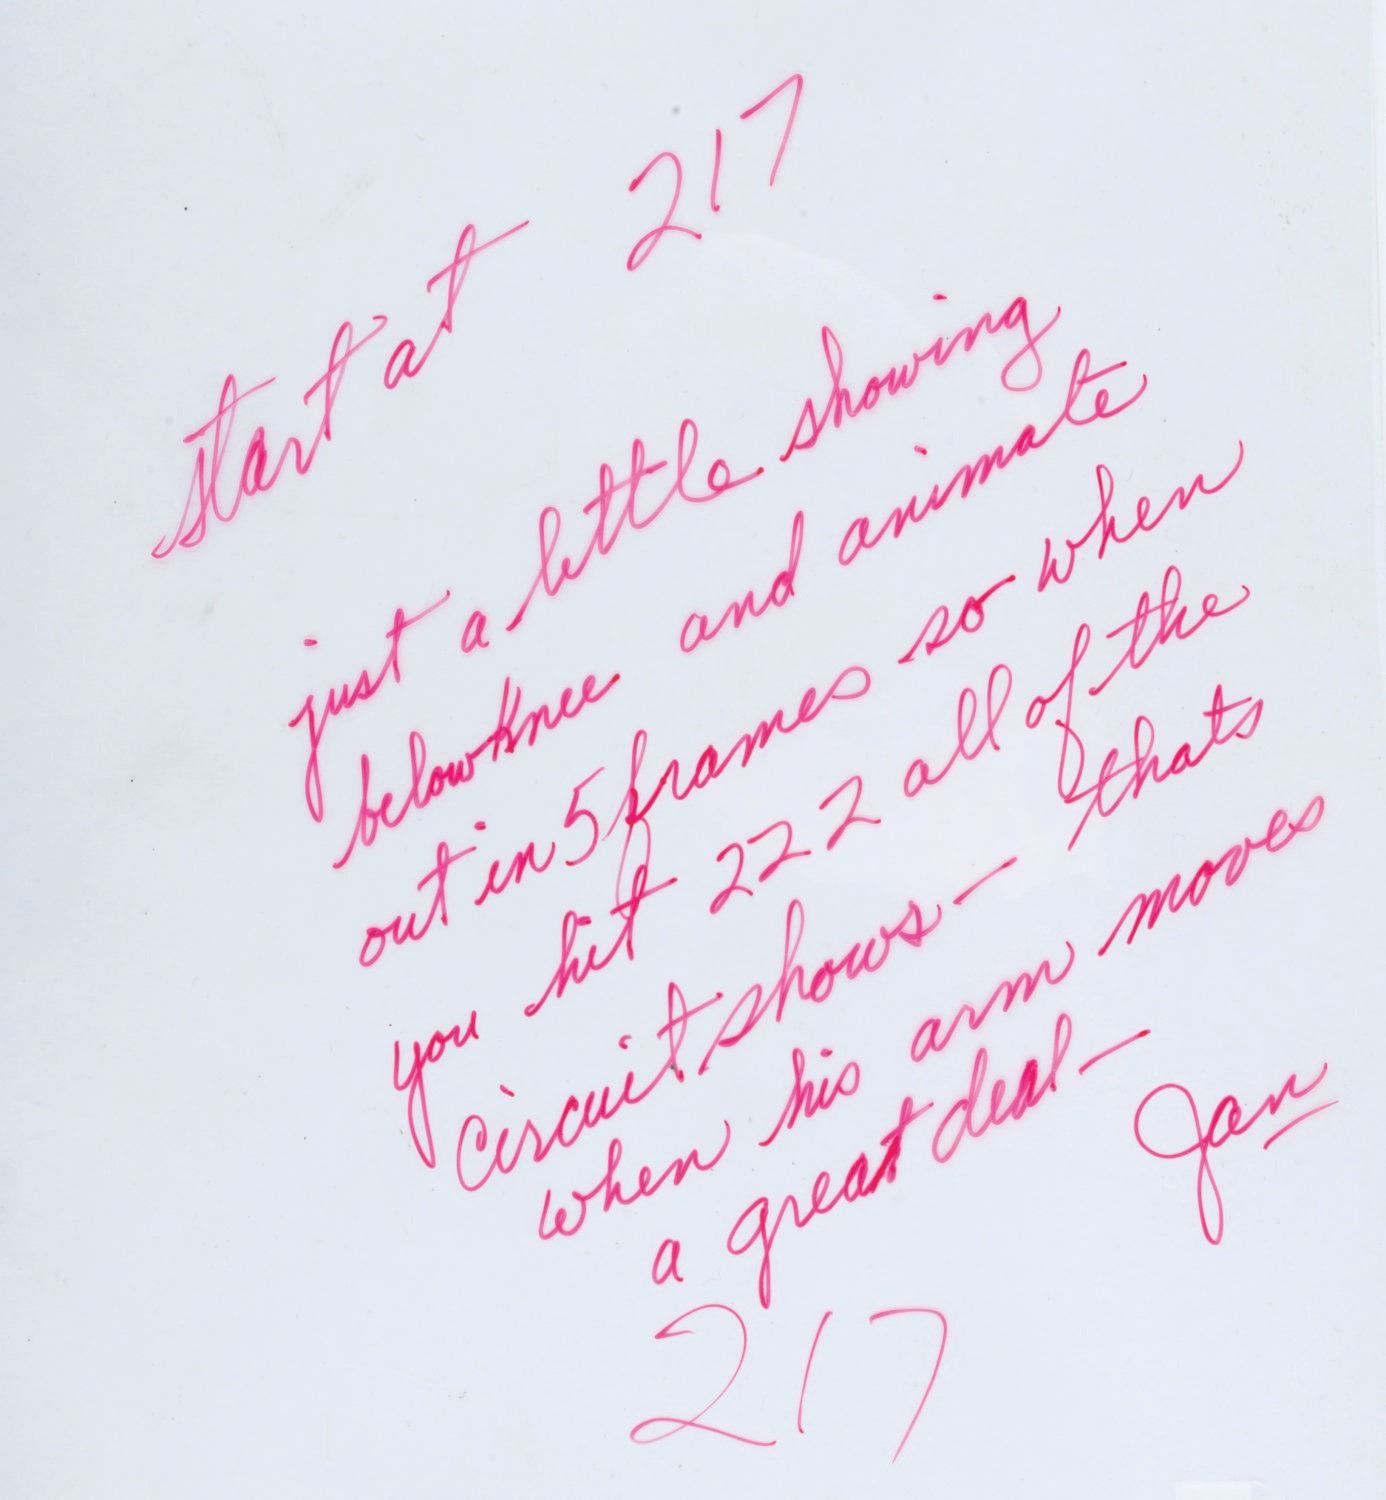 start at 217
just a little showing
below knee and animate
out in 5 frames so when
you hit 222 all of the
circuit shows - thats
when his arm moves
a great deal -
Jan
217